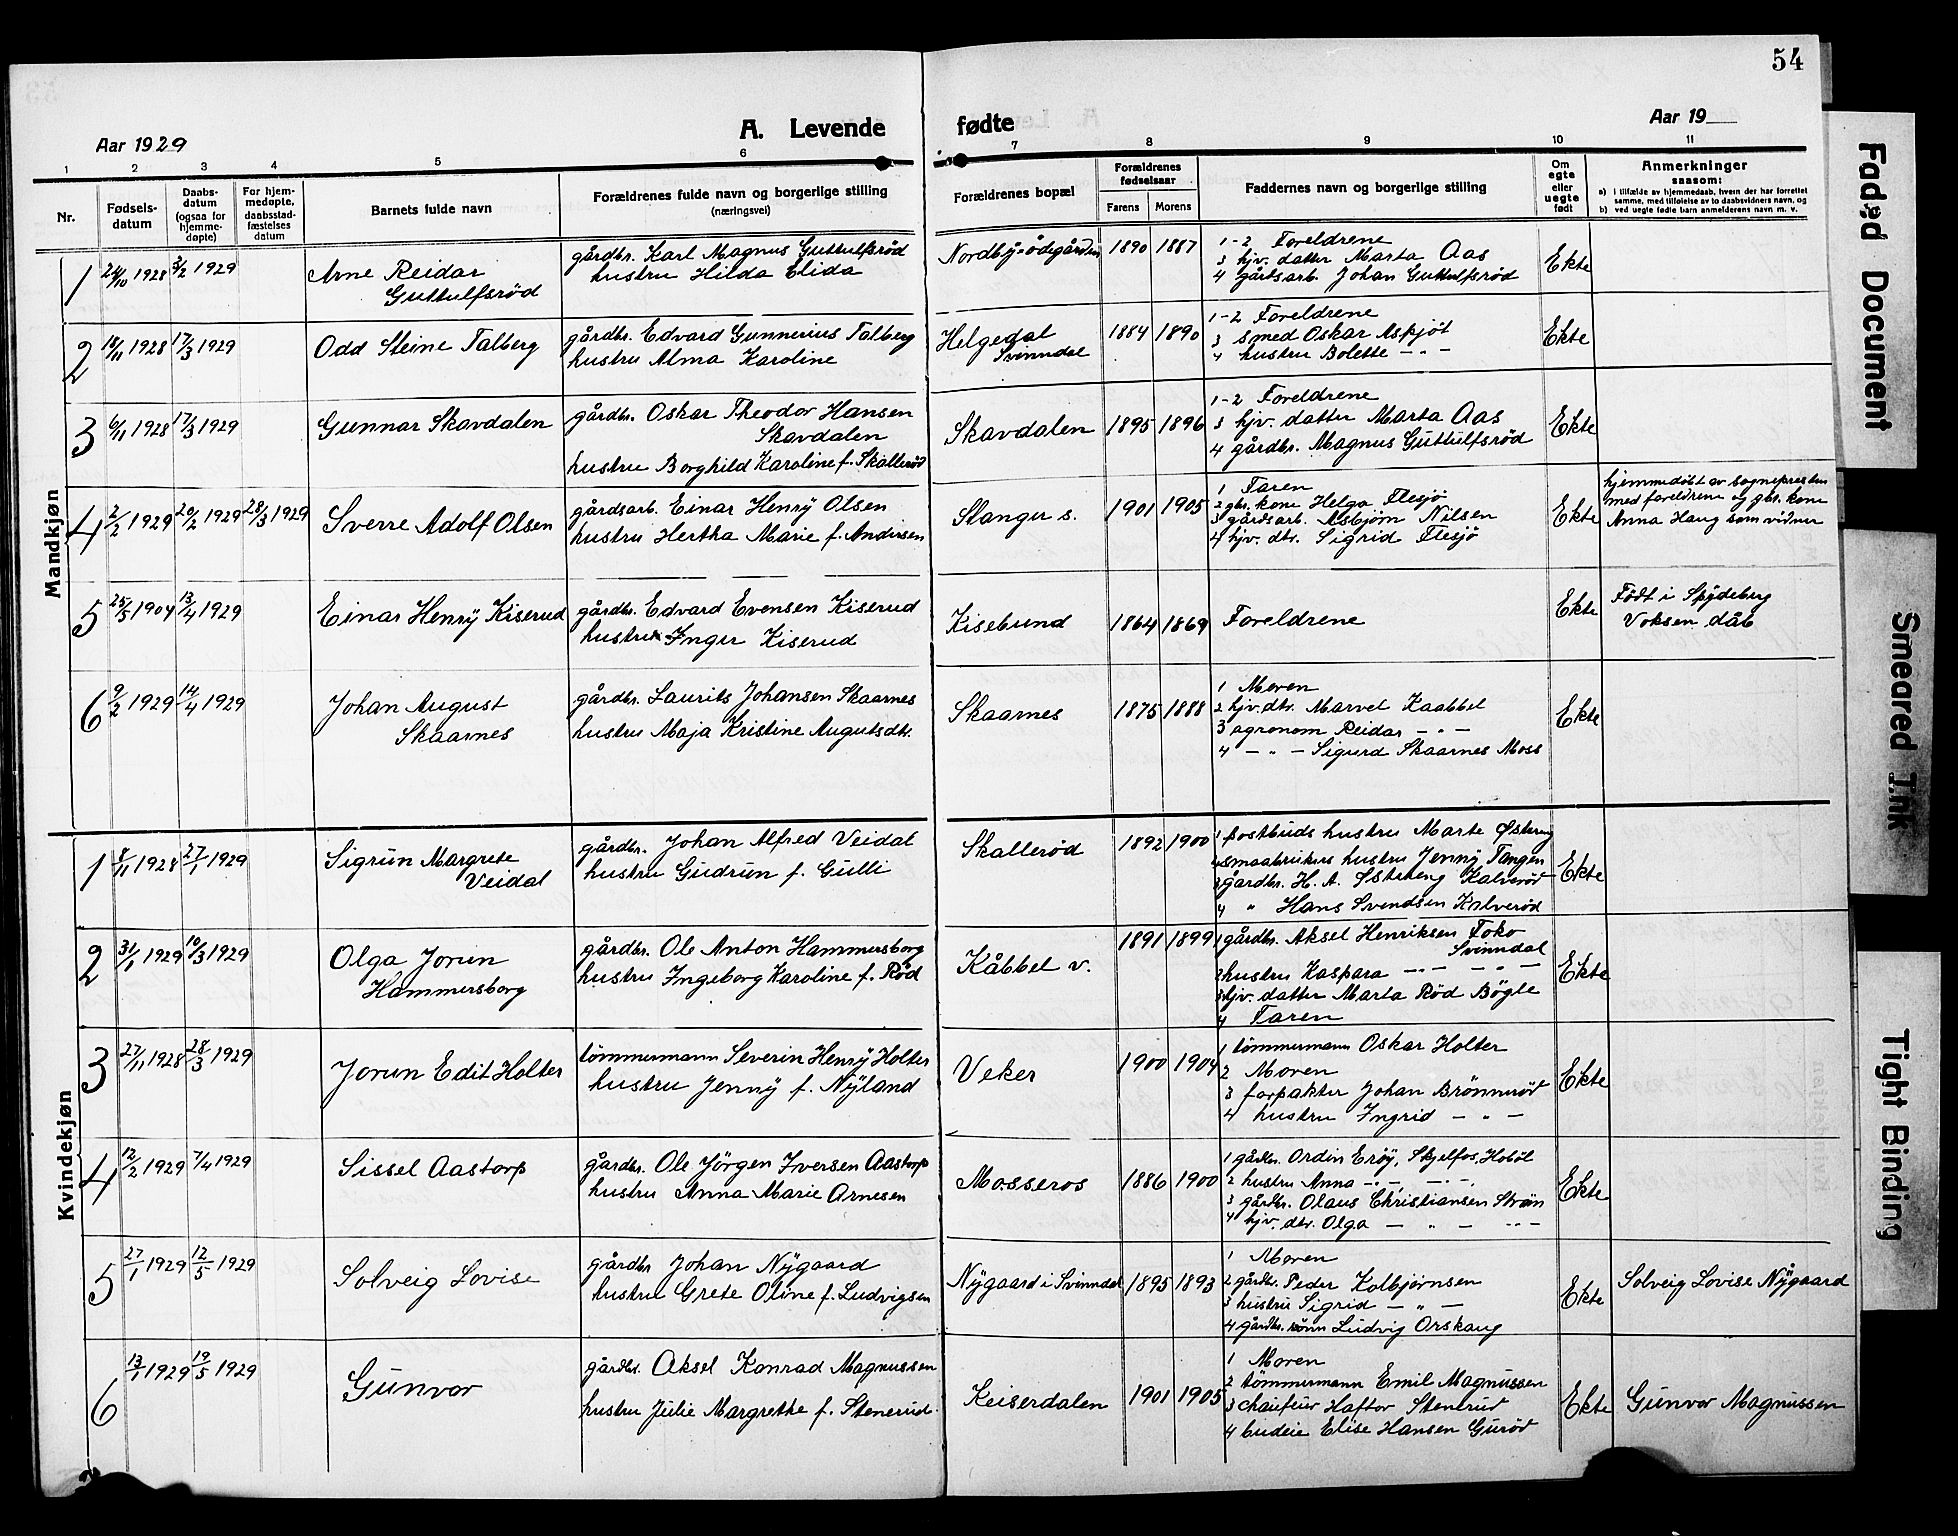 54
Aar 1929
A. Levende
fødte
Aar 19
1 2 3 4 5 6 7 8 9 10 11
Nr.
Fødsels-
datum
Daabs-
datum
(ogsaa for
hjemme-
døpte)
For hjem-
medøpte,
daabsstad-
fæstelses
datum
Barnets fulde navn
Forældrenes fulde navn og borgerlige stilling
(næringsvei)
Forældrenes bopæl
Forældrenes
fødselsaar
Farens
Morens
Faddernes navn og borgerlige stilling
Om
egte
eller
uegte
født
Anmerkninger
saasom:
a) i tilfælde av hjemmedaab, hvem der har forrettet
samme, med tilføielse av to daabsvidners navn, og
b) ved uegte fødte barn anmelderens navn m. v.
Mandkjøn
1 24/10 1928 3/2 1929
Arne Reidar
Guttulfsröd
gårdbr. Karl Magnus Guttulfsröd
hustru Hilda Elida
Nordby-ödegården 1890 1887
1-2 Foreldrene
3 hjv. datter Marta Aas
4 gårdsarb. Johan Guttulfsröd
Ekte
2 18/11 1928 17/3 1929
Odd Steine Talberg
gårdbr. Edvard Gunnerius Talberg
hustru Alma Karoline
Helgedal
Svinndal
1884 1890
1-2 Foreldrene
3 smed Oskar Aspjöt
4 hustru Bolette — " —
Ekte
3 6/11 1928 17/3 1929
Gunnar Skavdalen
gårdbr. Oskar Theodor Hansen
Skavdalen
hustru Borghild Karoline f. Skalleröd
Skavdalen 1895 1896
1-2 Foreldrene
3 hjv. datter Marta Aas
4 gårdbr. Magnus Guttulfsröd
Ekte
4 2/2 1929 20/2 1929 28/3 1929
Sverre Adolf Olsen
gårdsarb. Einar Henry Olsen
hustru Hertha Marie f. Andersen
Stanger s. 1901 1905
1 Faren
2 gbr. kone Helga Flesjö
3 gårdsarb. Asbjörn Nilsen
4 hjv. dtr. Sigrid Flesjö
Ekte
hjemmedöbt av sognepresten
med foreldrene og gbr. kone
Anna Haug som vidner
5 25/5 1904 13/4 1929
Einar Henry Kiserud
gårdbr. Edvard Evensen Kiserud
hustru Inger Kiserud
Kisebund 1864 1869
Foreldrene
Ekte
Födt i Spydeberg
Voksen dåb
6 9/2 1929 14/4 1929
Johan August
Skaarnes
gårdbr. Laurits Johansen Skaarnes
hustru Maja Kristine Augutsdtr.
Skaarnes 1875 1888
1 Moren
2 hjv. dtr. Marvel Kaabbel
3 agronom Reidar — " —
4 — " — Sigurd Skaarnes Moss
Ekte
Kvindekjøn
1 8/11 1928 27/1 1929
Sigrun Margrete
Veidal
gårdbr. Johan Alfred Veidal
hustru Gudrun f. Gulli
Skalleröd 1892 1900
1 postbuds hustru Marte Østereng
2 smaabrukers hustru Jenny Tangen
3 gårdbr. H. A. Østereng Kalveröd
4 " Hans Svendsen Kalveröd
Ekte
2 31/1 1929 10/3 1929
Olga Jorun
Hammersborg
gårdbr. Ole Anton Hammersborg
hustru Ingeborg Karoline f. Röd
Kåbbel v. 1891 1899
1 gårdbr. Aksel Henriksen Foko
Svinndal
2 hustru Kaspara — " — — " —
3 hjv. datter Marta Röd Bögle
4 Faren
Ekte
3 27/11 1928 28/3 1929
Jorun Edit Holter
tömmermann Severin Henry Holter
hustru Jenny f. Nyland
Veker 1900 1904
1 tömmermann Oskar Holter
2 Moren
3 forpakter Johan Brönneröd
4 hustru Ingrid — " —
Ekte
4 12/2 1929 7/4 1929
Sissel Aastorp
gårdbr. Ole Jörgen Iversen Aastorp
hustru Anna Marie Arnesen
Mosseros 1886 1900
1 gårdbr. Ordin Eröy, Skjelfos, Hobøl
2 hustru Anna — " — — " —
3 gårdbr. Olaus Christiansen
4 hjv. dtr. Olga — " — — " —
Ekte
5 27/1 1929 12/5 1929
Solveig Lovise
gårdbr Johan Nygaard
hustru Grete Oline f. Ludvigsen
Nygaard i Svinndal 1895 1893
1 Moren
2 gårdbr. Peder Kolbjørnsen
3 hustru Sigrid — " —
4 gårdbr. sönn Ludvig Orskaug
Ekte
Solveig Lovise Nygaard
6 13/1 1929 19/5 1929
Gunvor
gårdbr. Aksel Konrad Magnussen
hustru Julie Margrethe f. Stenerud.
Keiserdalen 1901 1905
1 Moren
2 tömmermann Emil Magnussen
3 chaufeur Haftor Stenrud
4 budeie Elise Hansen Guröd
Ekte
Gunvor Magnussen
Faded Document
Smeared Ink
Tight Binding